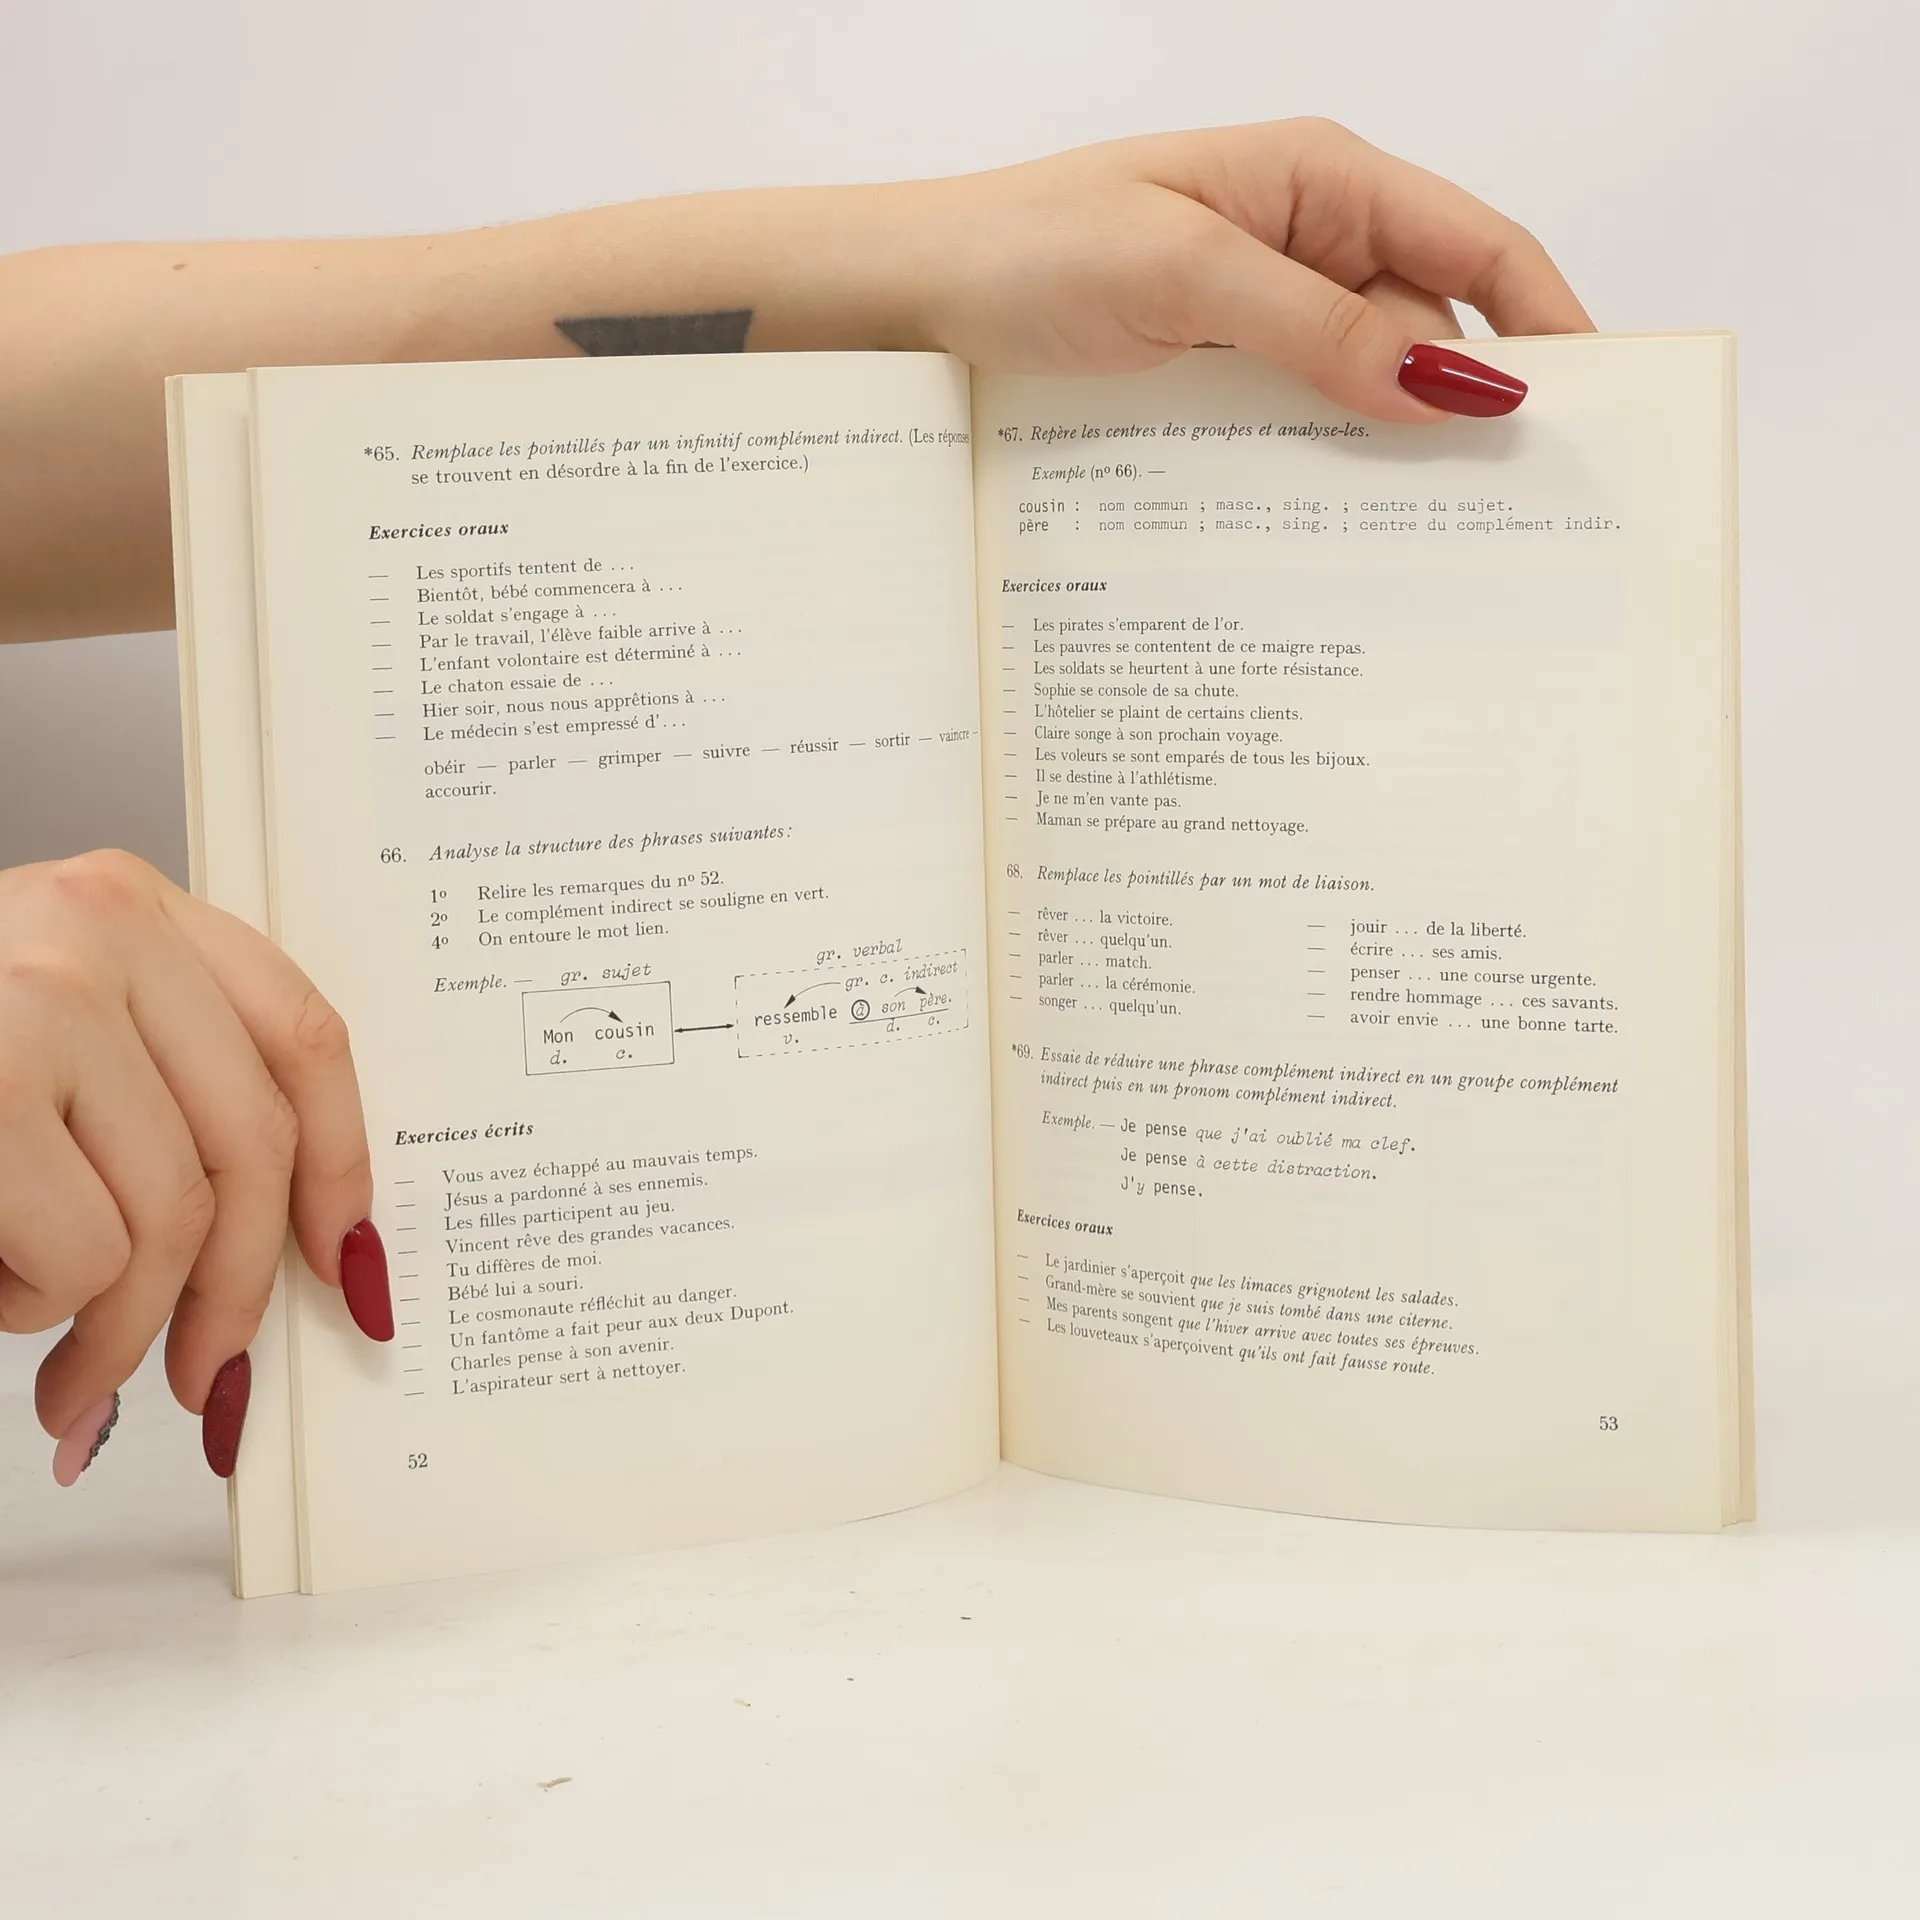 *65. Remplace les pointillés par un infinitif complément indirect. (Les réponses
se trouvent en désordre à la fin de l'exercice.)
Exercices oraux
— Les sportifs tentent de ...
— Bientôt, bébé commencera à ...
— Le soldat s'engage à ...
— Par le travail, l'élève faible arrive à ...
— L'enfant volontaire est déterminé à ...
— Le chaton essaie de ...
— Hier soir, nous nous apprêtions à ...
— Le médecin s'est empressé d'...
obéir — parler — grimper — suivre — réussir — sortir — vaincre —
accourir.
66. Analyse la structure des phrases suivantes:
1º Relire les remarques du nº 52.
2º Le complément indirect se souligne en vert.
4º On entoure le mot lien.
Exemple. — gr. sujet gr. verbal
gr. c. indirect
Mon cousin ressemble à son père.
d. c. v. d. c.
Exercices écrits
— Vous avez échappé au mauvais temps.
— Jésus a pardonné à ses ennemis.
— Les filles participent au jeu.
— Vincent rêve des grandes vacances.
— Tu diffères de moi.
— Bébé lui a souri.
— Le cosmonaute réfléchit au danger.
— Un fantôme a fait peur aux deux Dupont.
— Charles pense à son avenir.
— L'aspirateur sert à nettoyer.
52
*67. Repère les centres des groupes et analyse-les.
Exemple (nº 66). —
cousin : nom commun ; masc., sing. ; centre du sujet.
père : nom commun ; masc., sing. ; centre du complément indir.
Exercices oraux
— Les pirates s'emparent de l'or.
— Les pauvres se contentent de ce maigre repas.
— Les soldats se heurtent à une forte résistance.
— Sophie se console de sa chute.
— L'hôtelier se plaint de certains clients.
— Claire songe à son prochain voyage.
— Les voleurs se sont emparés de tous les bijoux.
— Il se destine à l'athlétisme.
— Je ne m'en vante pas.
— Maman se prépare au grand nettoyage.
68. Remplace les pointillés par un mot de liaison.
— rêver ... la victoire.
— rêver ... quelqu'un.
— parler ... match.
— parler ... la cérémonie.
— songer ... quelqu'un.
— jouir ... de la liberté.
— écrire ... ses amis.
— penser ... une course urgente.
— rendre hommage ... ces savants.
— avoir envie ... une bonne tarte.
*69. Essaie de réduire une phrase complément indirect en un groupe complément
indirect puis en un pronom complément indirect.
Exemple. — Je pense que j'ai oublié ma clef.
Je pense à cette distraction.
J'y pense.
Exercices oraux
— Le jardinier s'aperçoit que les limaces grignotent les salades.
— Grand-mère se souvient que je suis tombé dans une citerne.
— Mes parents songent que l'hiver arrive avec toutes ses épreuves.
— Les louveteaux s'aperçoivent qu'ils ont fait fausse route.
53